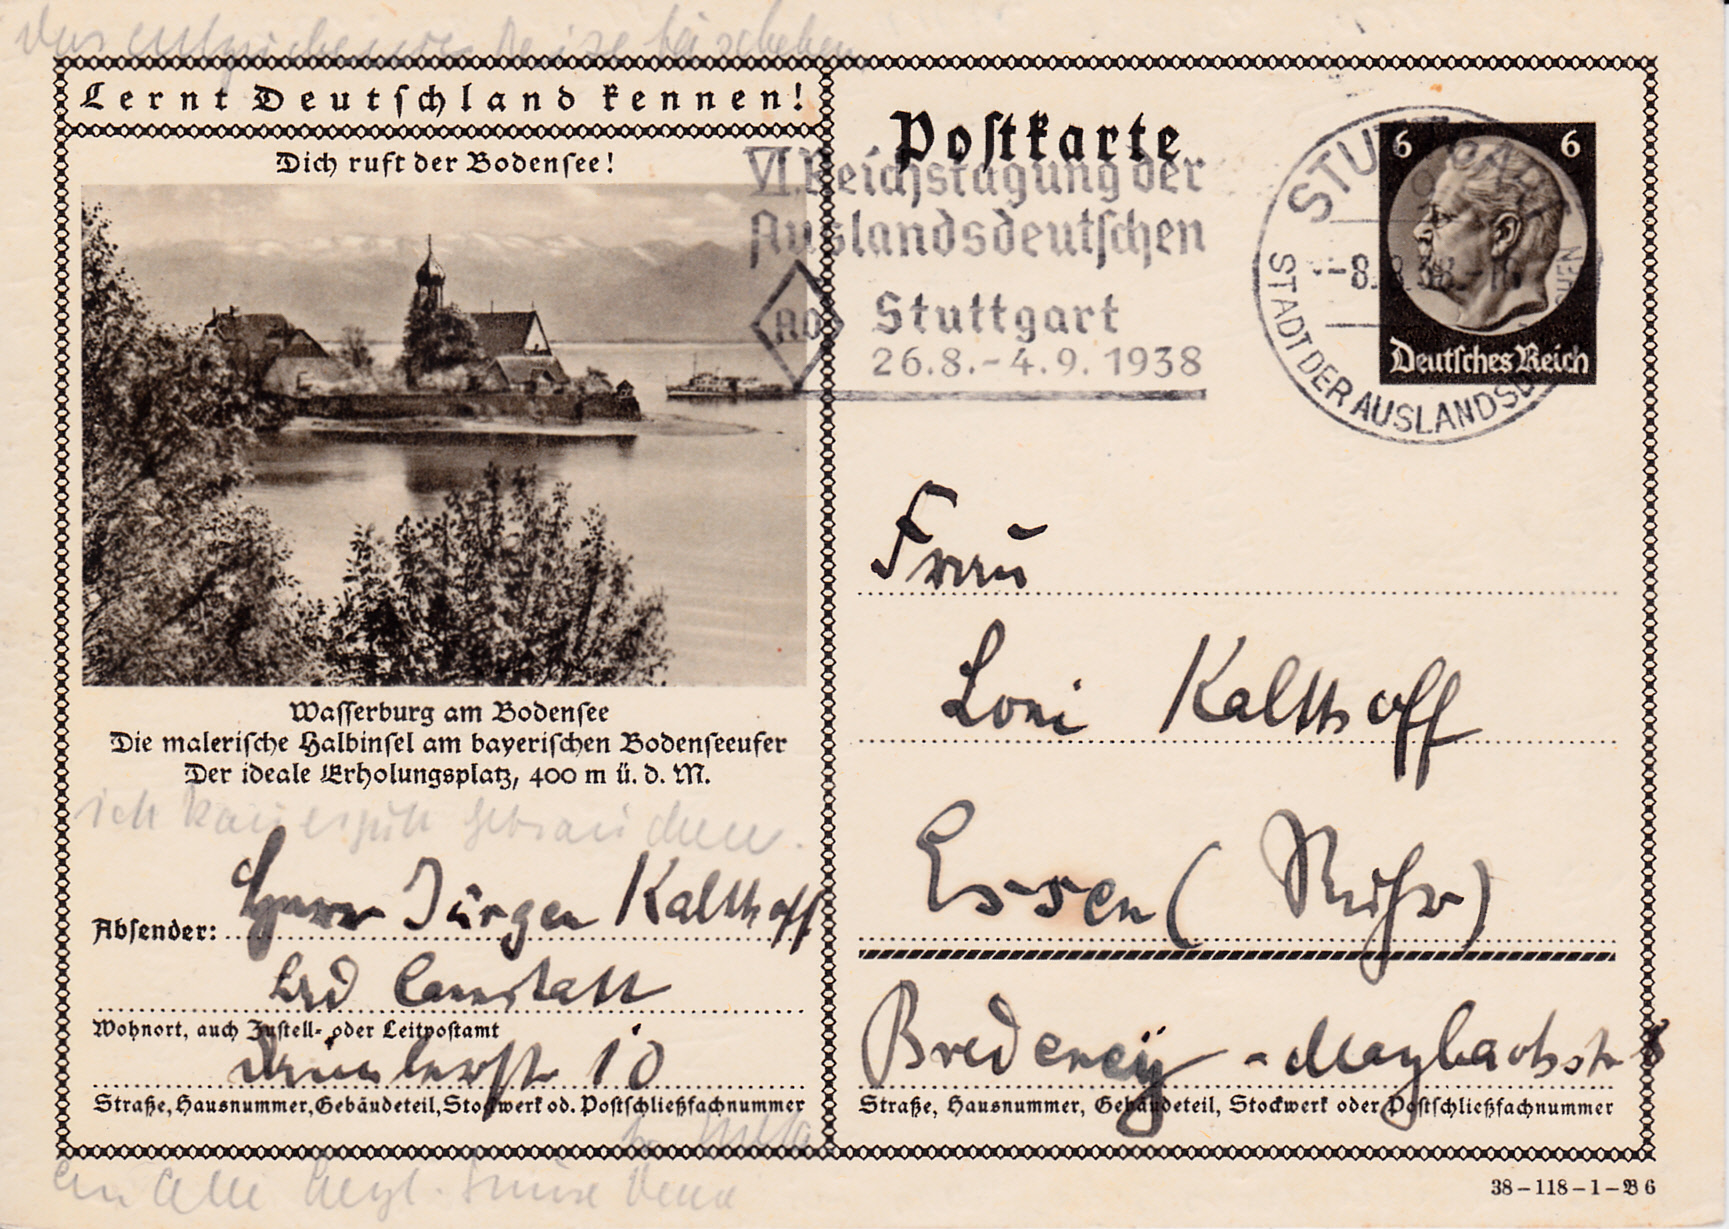 Lernt Deutschland kennen!
Dich ruft der Bodensee!
Wasserburg am Bodensee
Die malerische Halbinsel am bayerischen Bodenseeufer
Der ideale Erholungsplatz, 400 m ü. d. M.
ich
Absender: Herrn Jürgen Kalthoff
Bad Cannstatt
Wohnort, auch Zustell- oder Leitpostamt
Daimlerstr 10
Straße, Hausnummer, Gebäudeteil, Stockwerk od. Postschließfachnummer
Postkarte
VI. Reichstagung der
Auslandsdeutschen
AO
Stuttgart
26.8.-4.9.1938
STUTTGART
-8.8.38.-
STADT DER AUSLANDSDEUTSCHEN
6 6
Deutsches Reich
Frau
Loni Kalthoff
Essen (Ruhr)
Bredeney - Maybachstr 8
Straße, Hausnummer, Gebäudeteil, Stockwerk oder Postschließfachnummer
38-118-1-B 6